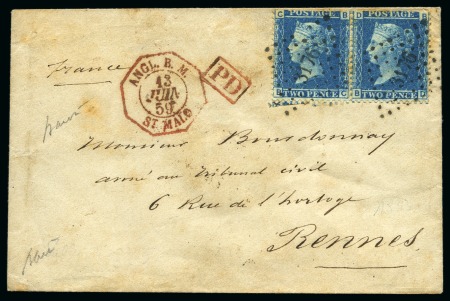 ANGL. B. M.
13
JUIN
59
ST MALO
PD
C B
POSTAGE
B C
TWO PENCE
D B
POSTAGE
B D
TWO PENCE
France
Monsieur Bourdonnay
avoué au tribunal civil
6 Rue de l'horloge
Rennes